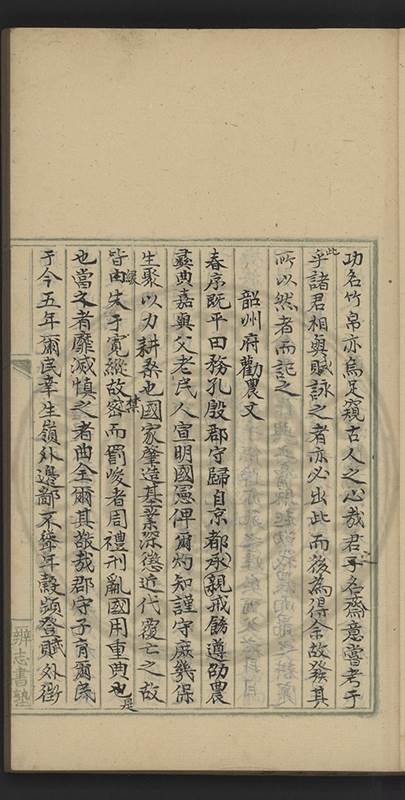 功名竹帛亦烏足窺古人之心哉君子名齋意嘗考于
此乎諸君相與賦詠之者亦必出此而後為得余故發其
所以然者而記之
韶州府勸農文
春序既平田務孔殷郡守歸自京都承親戒飭遵劭農
彝典嘉與父老民人宣明國憲俾爾灼知謹守庶幾保
生聚以力耕桑也國家肇造丕業深懲近代覆亡之故
皆由失于寬縱故禁密而罰峻者周禮刑亂國用重典也
是也當之者靡滅慎之者曲全爾其敬哉郡守子育爾民
于今五年爾民幸生嶺外邊鄙不聳年穀頻登賦外徵
辨志書塾